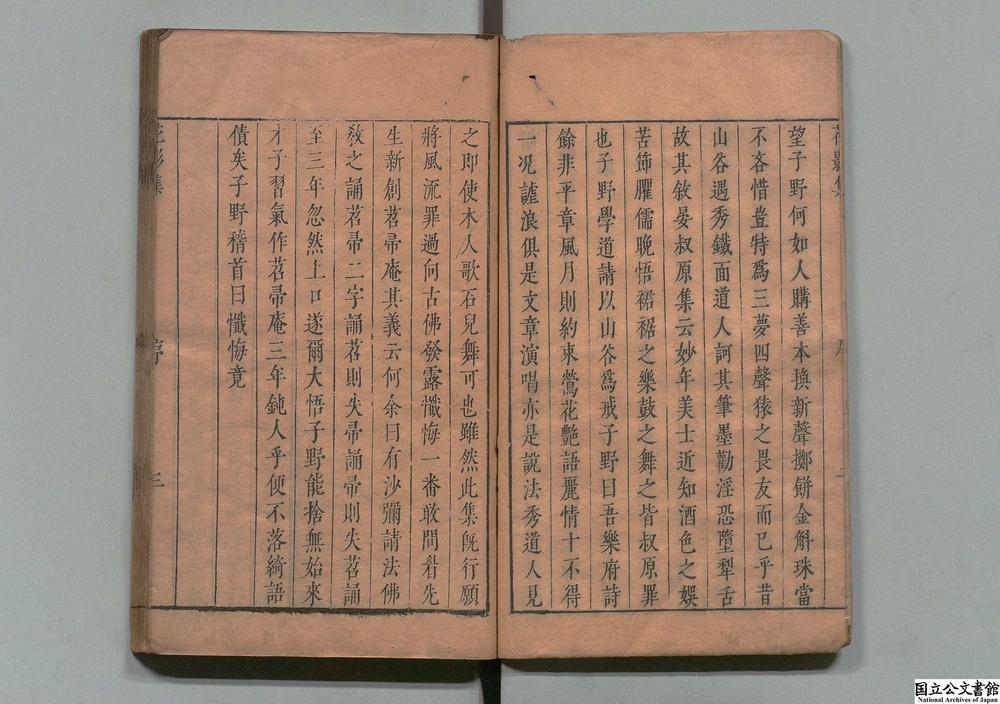 望子野何如人購善本換新聲擲餅金斛珠當
不吝惜豈特爲三夢四聲猿之畏友而已乎昔
山谷遇秀鐵面道人訶其筆墨勸淫恐墮犁舌
故其敘晏叔原集云妙年美士近知酒色之娛
苦節臞儒晚悟裙裾之樂鼓之舞之皆叔原罪
也子野學道請以山谷爲戒子野曰吾樂府詩
餘非平章風月則約束鶯花艷語麗情十不得
一况謔浪俱是文章演唱亦是說法秀道人見
二
之卽使木人歌石兒舞可也雖然此集旣行願
將風流罪過向古佛發露懺悔一番敢問眉先
生新創苕帚庵其義云何余曰有沙彌請法佛
敎之誦苕帚二字誦苕則失帚誦帚則失苕誦
至三年忽然上口遂爾大悟子野能捨無始來
才子習氣作苕帚庵三年鈍人乎便不落綺語
債矣子野稽首曰懺悔竟
花影集
序
三
国立公文書館
National Archives of Japan